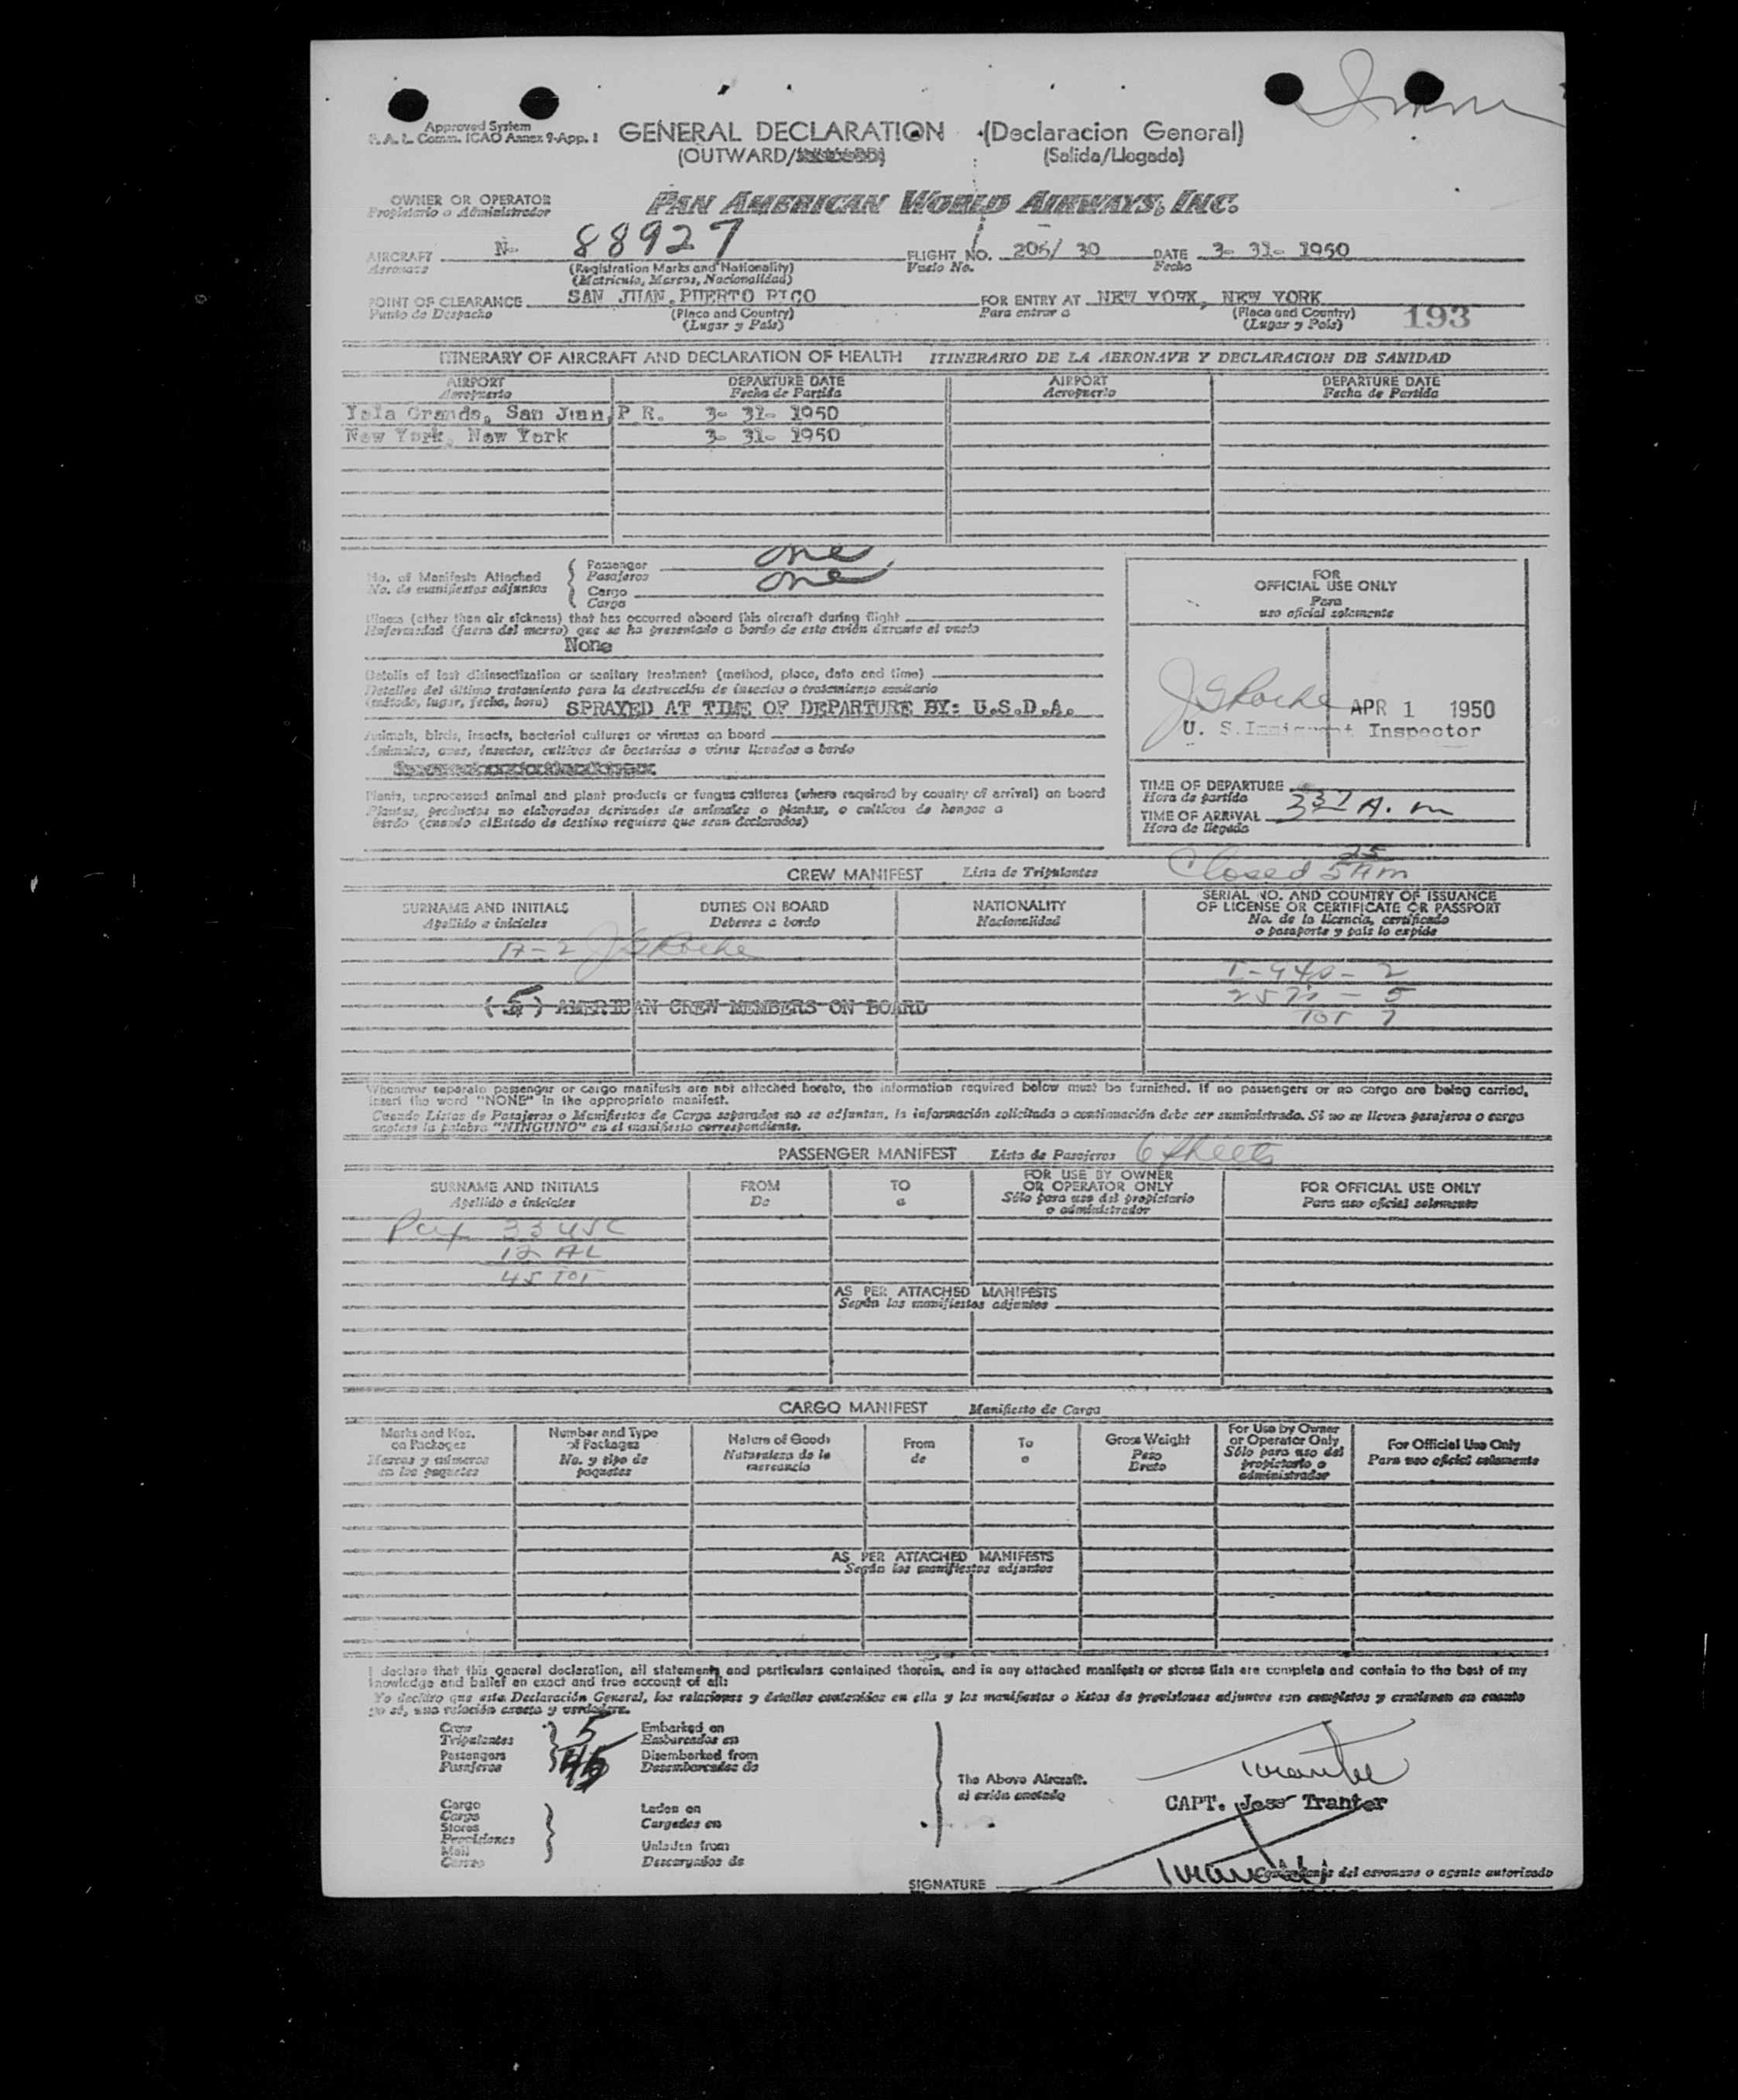 Approved System
F. A. L. Comm. ICAO Annex 9-App. 1
GENERAL DECLARATION (Declaracion General)
(OUTWARD/ (Salida/Llegada)
OWNER OR OPERATOR
Propietario o Administrador
PAN AMERICAN WORLD AIRWAYS, INC.
AIRCRAFT N- 88927 FLIGHT NO. 206/ 30 DATE 3- 31- 1950
Aeronave (Registration Marks and Nationality) Vuelo No. Fecha
(Matricula, Marcas, Nacionalidad)
POINT OF CLEARANCE SAN JUAN, PUERTO RICO FOR ENTRY AT NEW YORK, NEW YORK
Punto de Despacho (Place and Country) Para entrar a (Place and Country)
(Lugar y País) (Lugar y País)
193
ITINERARY OF AIRCRAFT AND DECLARATION OF HEALTH ITINERARIO DE LA AERONAVE Y DECLARACION DE SANIDAD
AIRPORT DEPARTURE DATE AIRPORT DEPARTURE DATE
Aeropuerto Fecha de Partida Aeropuerto Fecha de Partida
Isla Grande, San Juan, P R. 3- 31- 1950
New York, New York 3- 31- 1950
No. of Manifests Attached
No. de manifiestos adjuntos
Passenger one
Pasajeros
Cargo one
Carga
Illness (other than air sickness) that has occurred aboard this aircraft during flight
Enfermedad (fuera del mareo) que se ha presentado a bordo de este avión durante el vuelo
None
Details of last disinsectization or sanitary treatment (method, place, date and time)
Detalles del último tratamiento para la destrucción de insectos o tratamiento sanitario
(método, lugar, fecha, hora) SPRAYED AT TIME OF DEPARTURE BY: U.S.D.A.
Animals, birds, insects, bacterial cultures or viruses on board
Animales, aves, insectos, cultivos de bacterias o virus llevados a bordo
Plants, unprocessed animal and plant products or fungus cultures (where required by country of arrival) on board
Plantas, productos no elaborados derivados de animales o plantas, o cultivos de hongos a
bordo (cuando el Estado de destino requiera que sean declarados)
FOR
OFFICIAL USE ONLY
Para
uso oficial solamente
J G Roche APR 1 1950
U. S. Immigrant Inspector
TIME OF DEPARTURE
Hora de partida
TIME OF ARRIVAL 337 A. m
Hora de llegada
Closed 5 25 Am
CREW MANIFEST Lista de Tripulantes
SURNAME AND INITIALS DUTIES ON BOARD NATIONALITY SERIAL NO. AND COUNTRY OF ISSUANCE
OF LICENSE OR CERTIFICATE OR PASSPORT
Apellido e iniciales Deberes a bordo Nacionalidad No. de la licencia, certificado
o pasaporte y país lo expide
A-2 J G Roche
I-940- 2
(5) AMERICAN CREW MEMBERS ON BOARD
TOT 7
Whenever separate passenger or cargo manifests are not attached hereto, the information required below must be furnished. If no passengers or no cargo are being carried,
insert the word "NONE" in the appropriate manifest.
Cuando Listas de Pasajeros o Manifiestos de Carga separados no se adjuntan, la información solicitada a continuación debe ser suministrada. Si no se llevan pasajeros o carga
anotese la palabra "NINGUNO" en el manifiesto correspondiente.
PASSENGER MANIFEST Lista de Pasajeros 6 Sheets
SURNAME AND INITIALS FROM TO FOR USE BY OWNER OR OPERATOR ONLY FOR OFFICIAL USE ONLY
Apellido e iniciales De a Sólo para uso del propietario o administrador Para uso oficial solamente
Pax 33 USC
12 AL
45 TOT
AS PER ATTACHED MANIFESTS
Según los manifiestos adjuntos
CARGO MANIFEST Manifiesto de Carga
Marks and Nos. on Packages Number and Type of Packages Nature of Goods From To Gross Weight For Use by Owner or Operator Only For Official Use Only
Marcas y números en los paquetes No. y tipo de paquetes Naturaleza de la mercancía de a Peso Bruto Sólo para uso del propietario o administrador Para uso oficial solamente
AS PER ATTACHED MANIFESTS
Según los manifiestos adjuntos
I declare that this general declaration, all statements and particulars contained therein, and in any attached manifests or stores lists are complete and contain to the best of my
knowledge and belief an exact and true account of all:
Yo declaro que esta Declaración General, las relaciones y detalles contenidos en ella y los manifiestos o listas de provisiones adjuntos son completos y contienen en cuanto
yo sé, una relación exacta y verdadera.
Crew 5 Embarked on
Tripulantes Embarcados en
Passengers 45 Disembarked from
Pasajeros Desembarcados de
The Above Aircraft.
el avión anotado
Cargo
Carga
Stores
Provisiones
Mail
Correo
Laden on
Cargados en
Unladen from
Descargados de
CAPT. Jess Tranter
SIGNATURE
Comandante del aeronave o agente autorizado